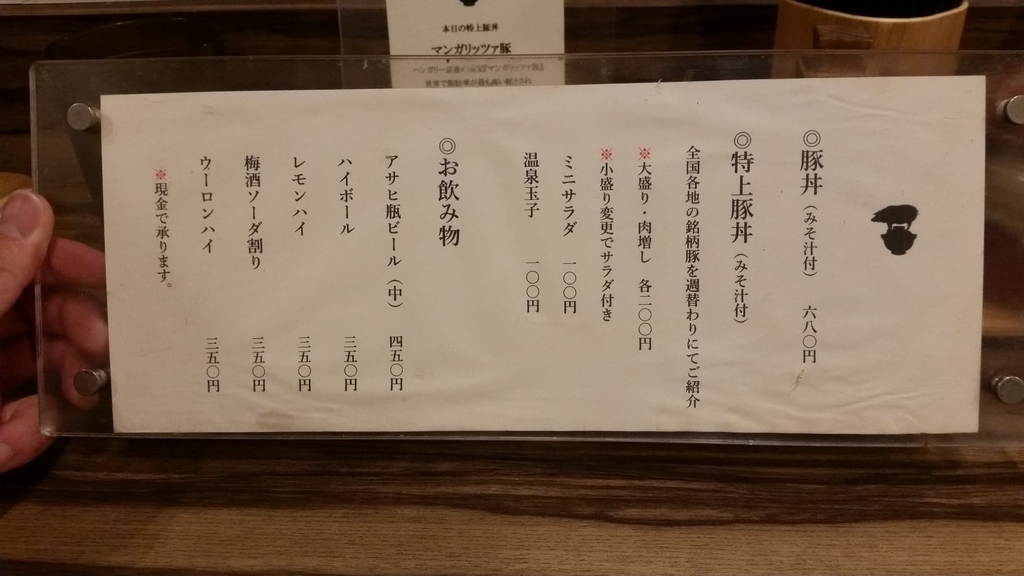 本日の特上豚丼
マンガリッツァ豚
◎豚丼（みそ汁付） 六八〇円
◎特上豚丼（みそ汁付）
全国各地の銘柄豚を週替わりにてご紹介
※大盛り・肉増し 各二〇〇円
※小盛り変更でサラダ付き
ミニサラダ 一〇〇円
温泉玉子 一〇〇円
◎お飲み物
アサヒ瓶ビール（中） 四五〇円
ハイボール 三五〇円
レモンハイ 三五〇円
梅酒ソーダ割り 三五〇円
ウーロンハイ 三五〇円
※現金で承ります。